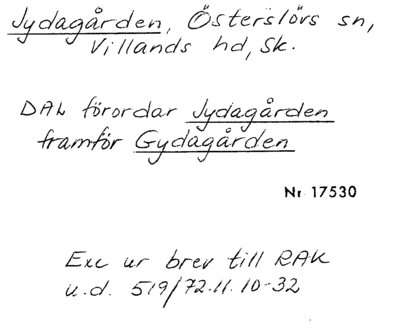 Jydagården, Österslövs sn,
Villands hd, Sk.
DAL förordar Jydagården
framför Gydagården
Nr 17530
Exc ur brev till RAK
u.d. 519/72.11.10-32